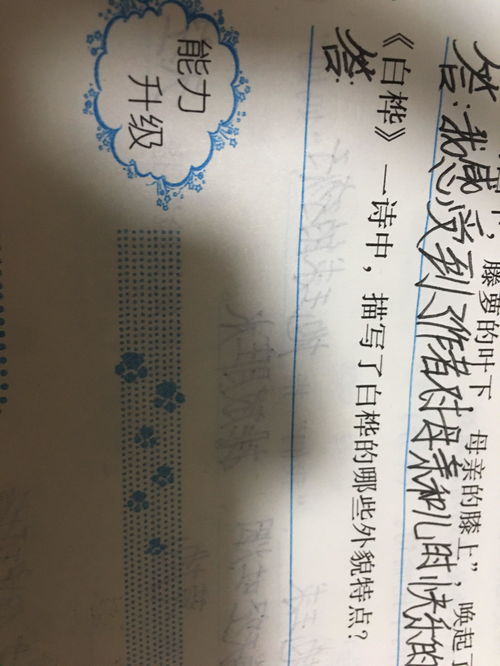 藤萝的叶下 母亲的膝上”，唤起
答：我感受到了作者对母亲和儿时快乐的
《白桦》一诗中，描写了白桦的哪些外貌特点？
答：
能力
升级